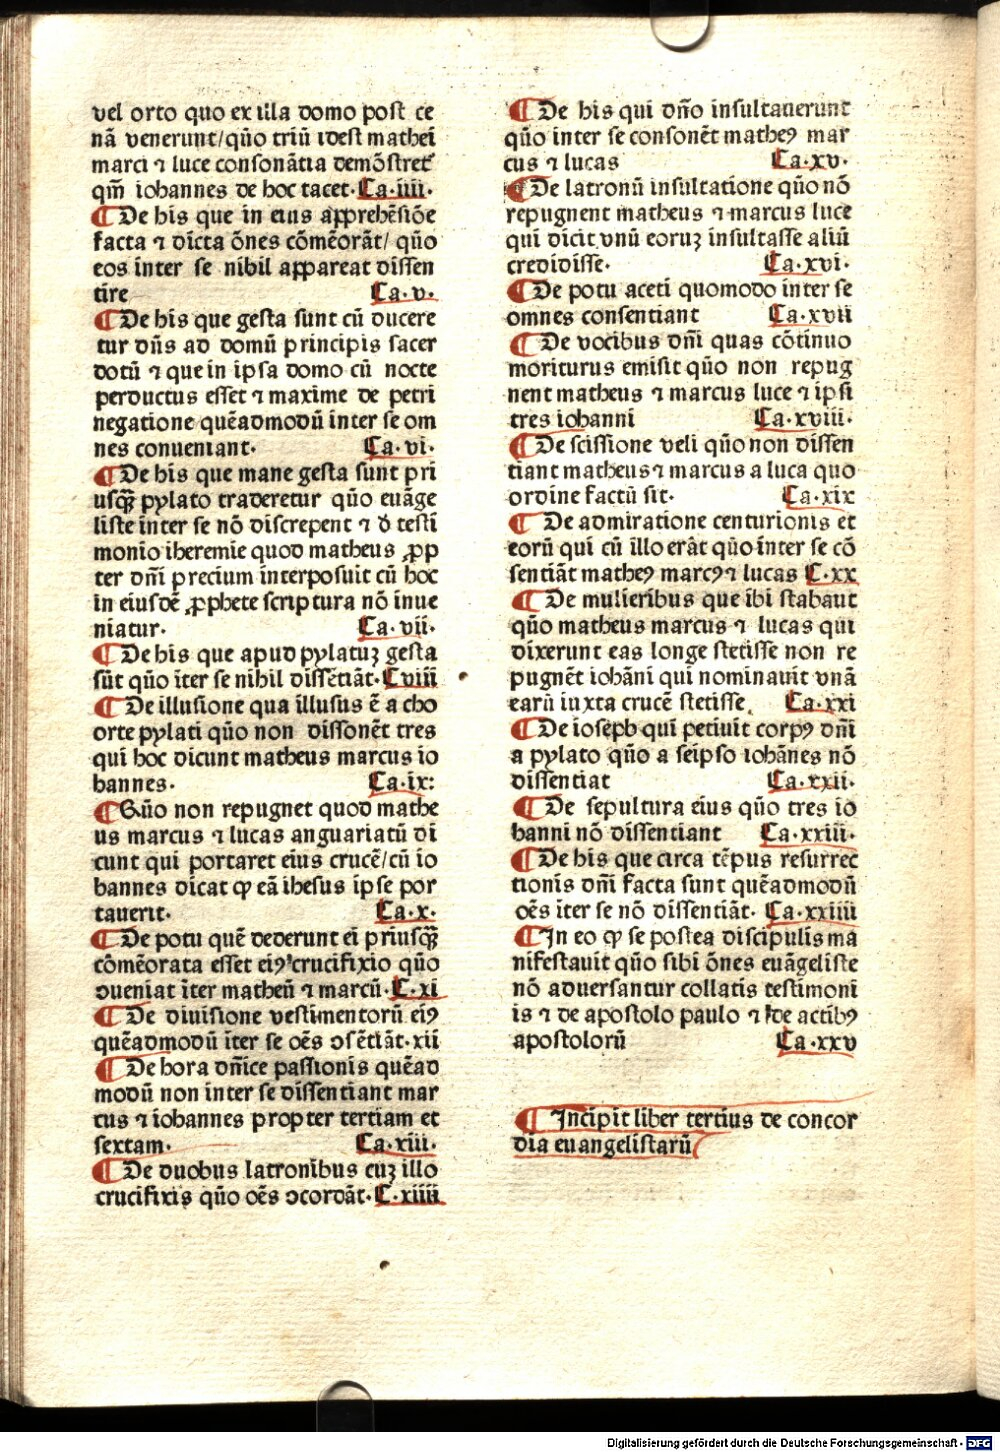 vel orto quo ex illa domo post ce
nā venerunt/quō triū idest mathei
marci ⁊ luce consonātia demōstret᷑
qm̄ iohannes de hoc tacet·Ca·iiii·
¶De his que in eius apprehēsiōe
facta ⁊ dicta ōnes cōmēorāt/ quō
eos inter se nihil appareat dissen
tire Ca·v·
¶De his que gesta sunt cū ducere
tur dn̄s ad domū principis sacer
dotū ⁊ que in ipsa domo cū nocte
perductus esset ⁊ maxime de petri
negatione quēadmodū inter se om
nes conueniant· Ca·vi·
¶De his que mane gesta sunt pri
usqȝ̄ pylato traderetur quō euāge
liste inter se nō discrepent ⁊ đ testi
monio iheremie quod matheus ꝓp
ter dn̄i precium interposuit cū hoc
in eiusdē ꝓphete scriptura nō inue
niatur· Ca·vii·
¶De his que apud pylatuȝ gesta
sūt quō īter se nihil dissētiāt·Cviii
¶De illusione qua illusus ē a cho
orte pylati quō non dissonēt tres
qui hoc dicunt matheus marcus io
hannes· Ca·ix:
¶Quō non repugnet quod mathe
us marcus ⁊ lucas anguariatū di
cunt qui portaret eius crucē/cū io
hannes dicat ꝙ eā ihesus ipse por
tauerit· Ca·x·
¶De potu quē dederunt ei priusqȝ̄
cōmēorata esset eiꝰ crucifixio quō
ↄueniat īter matheū ⁊ marcū·C·xi
¶De diuisione vestimentorū eiꝰ
quēadmodū īter se oēs ↄsētiāt·xii
¶De hora dn̄ice passionis quēad
modū non inter se dissentiant mar
cus ⁊ iohannes propter tertiam et
sextam· Ca·xiii·
¶De duobus latronibus cuȝ illo
crucifixis quō oēs ↄcordāt·C·xiiii
¶De his qui dn̄o insultauerunt
quō inter se consonēt matheꝰ mar
cus ⁊ lucas Ca·xv·
¶De latronū insultatione quō nō
repugnent matheus ⁊ marcus luce
qui dicit vnū eoruȝ insultasse aliū
credidisse· Ca·xvi·
¶De potu aceti quomodo inter se
omnes consentiant Ca·xvii
¶De vocibus dn̄i quas cōtinuo
moriturus emisit quō non repug
nent matheus ⁊ marcus luce ⁊ ipsi
tres iohanni Ca·xviii·
¶De scissione veli quō non dissen
tiant matheus ⁊ marcus a luca quo
ordine factū sit· Ca·xix
¶De admiratione centurionis et
eorū qui cū illo erāt quō inter se cō
sentiāt matheꝰ marcꝰ ⁊ lucas C·xx
¶De mulieribus que ibi stabant
quō matheus marcus ⁊ lucas qui
dixerunt eas longe stetisse non re
pugnēt iohāni qui nominauit vnā
earū iuxta crucē stetisse Ca·xxi
¶De ioseph qui petiuit corpꝰ dn̄i
a pylato quō a seipso iohānes nō
dissentiat Ca·xxii·
¶De sepultura eius quō tres io
hanni nō dissentiant Ca·xxiii·
¶De his que circa tēpus resurrec
tionis dn̄i facta sunt quēadmodū
oēs īter se nō dissentiāt· Ca·xxiiii
¶In eo ꝙ se postea discipulis ma
nifestauit quō sibi ōnes euāgeliste
nō aduersantur collatis testimoni
is ⁊ de apostolo paulo ⁊ de actibꝰ
apostolorū Ca·xxv
¶Incipit liber tertius de concor
dia euangelistarū
Digitalisierung gefördert durch die Deutsche Forschungsgemeinschaft - DFG